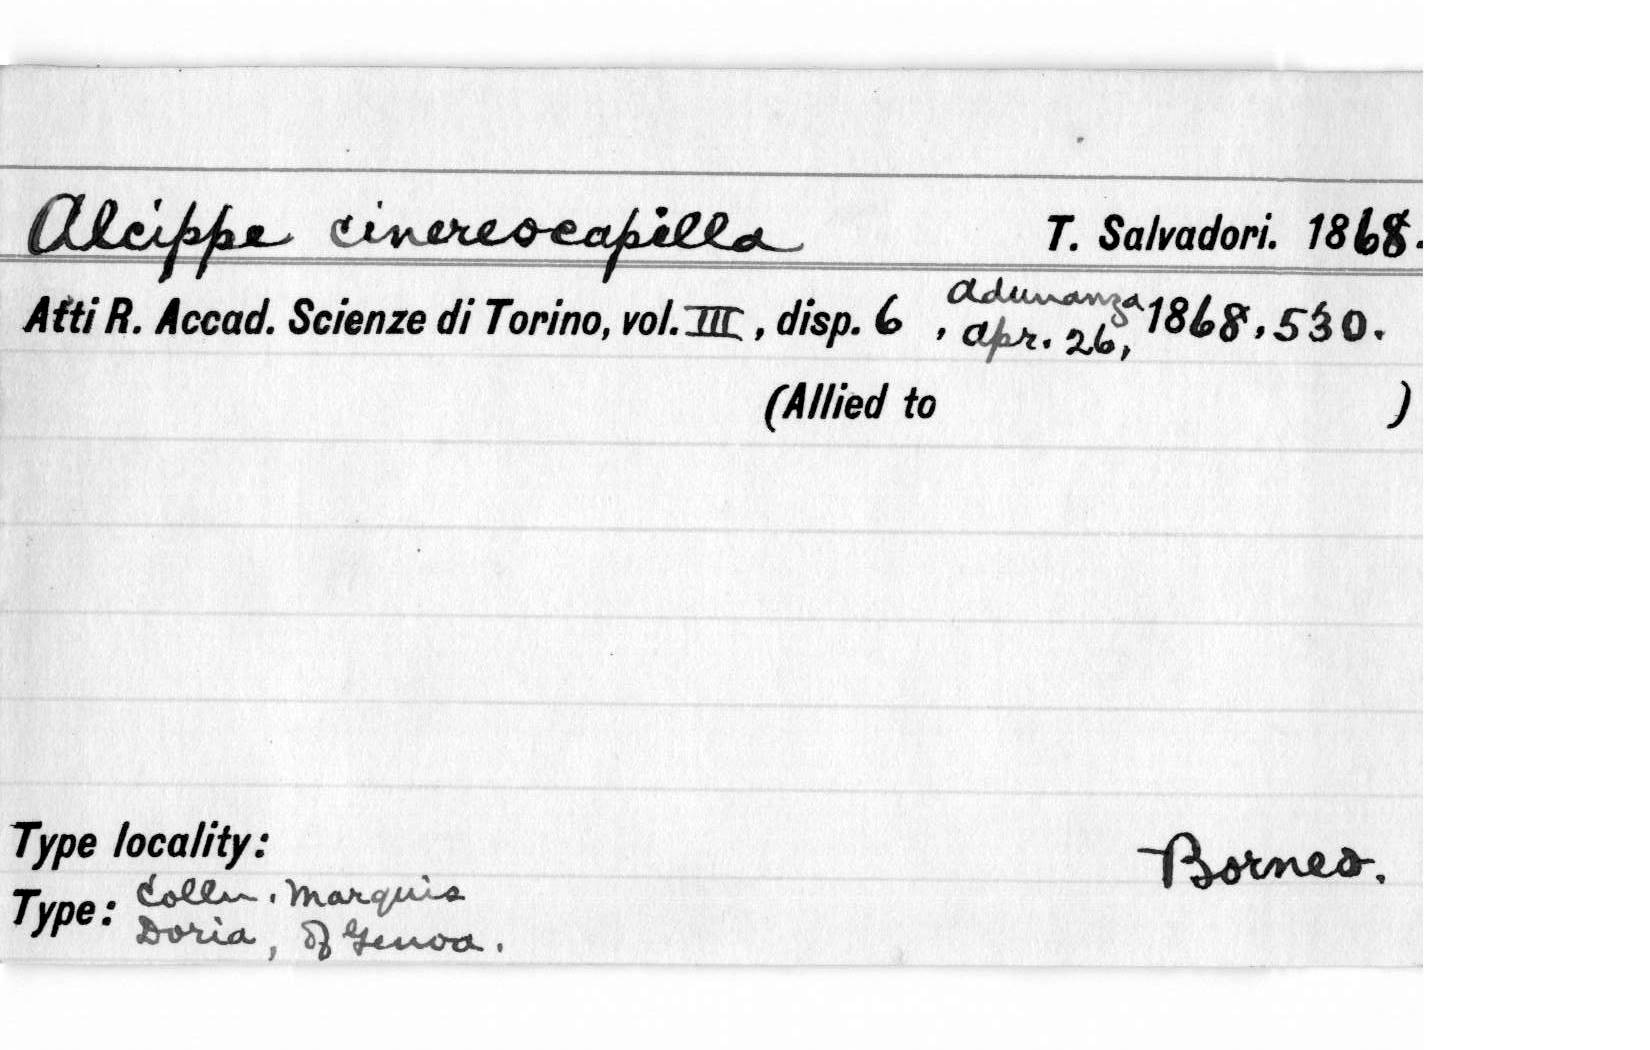 Alcippe cinereocapilla T. Salvadori. 1868.
Atti R. Accad. Scienze di Torino, vol. III, disp. 6, adunanza apr. 26, 1868, 530.
(Allied to )
Type locality: Borneo.
Type: Colln. Marquis
Doria, of Genoa.